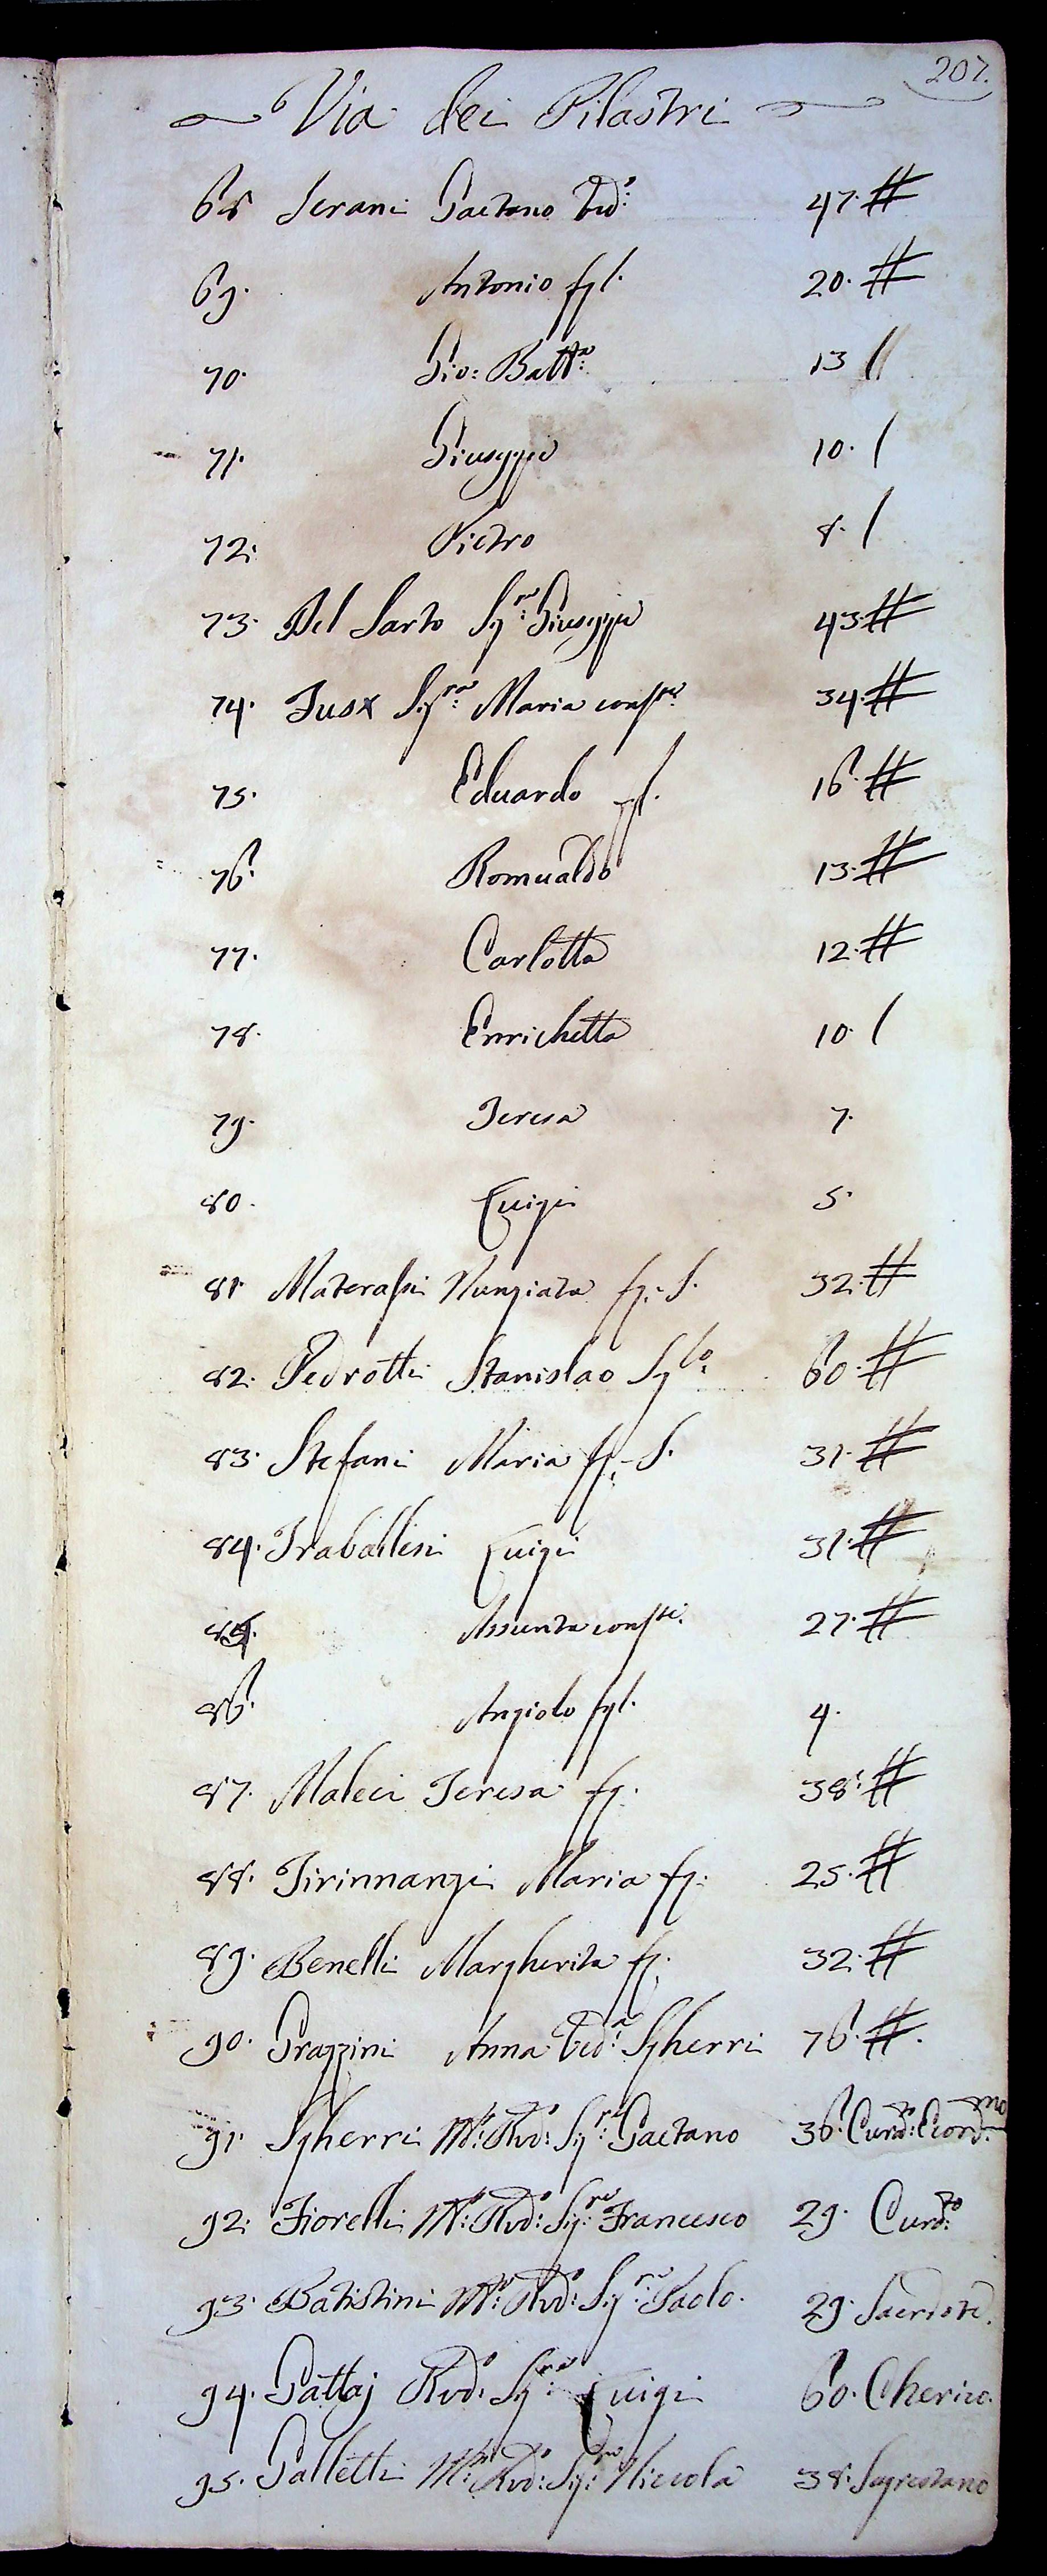 207.
Via dei Pilastri
68 Serani Gaetano Ved:º 47. #
69. Antonio fgl. 20. #
70. Gio: Battª: 13 //
71. Giuseppe 10. /
72: Pietro 8. /
73. Del Sarto Sgʳᵉ: Giuseppe 43. #
74. Maria consᵗᵉ: 34. #
75. Eduardo fgl. 16. #
76. Romualdo 13. #
77. Carlotta 12. #
78. Enrichetta 10. /
79. Teresa 7.
80. Luigi 5.
81. Materassi Nunziata fg: S. 32. #
82. Pedrotti Stanislao Sgˡᵒ: 60. #
83. Stefani Maria fg: S. 31. #
84. Traballesi Luigi 31. #
85. Assunta consᵗᵉ. 27. #
86. Angiolo fgl. 4.
87. Maleci Teresa fg: 38. #
88. Tirinnanzi Maria fg: 25. #
89. Benelli Margherita fg: 32. #
90. Grazzini Anna Ved:ª Sgherri 76. #.
91. Sgherri Mº: Rvd:º Sgʳᵉ: Gaetano 36. Curº:
92: Fiorelli Mº: Rvd:º Sgʳᵉ: Francesco 29. Curᵗᵒ:
93. Batistini Mº: Rvd:º Sgʳᵉ: Paolo. 29. Sacerdote.
94. Gattaj Rvd:º Sgʳᵉ: Luigi 60. Cherico.
95. Galletti Mº: Rvd:º Sgʳᵉ: Niccola 38. Sagrestano